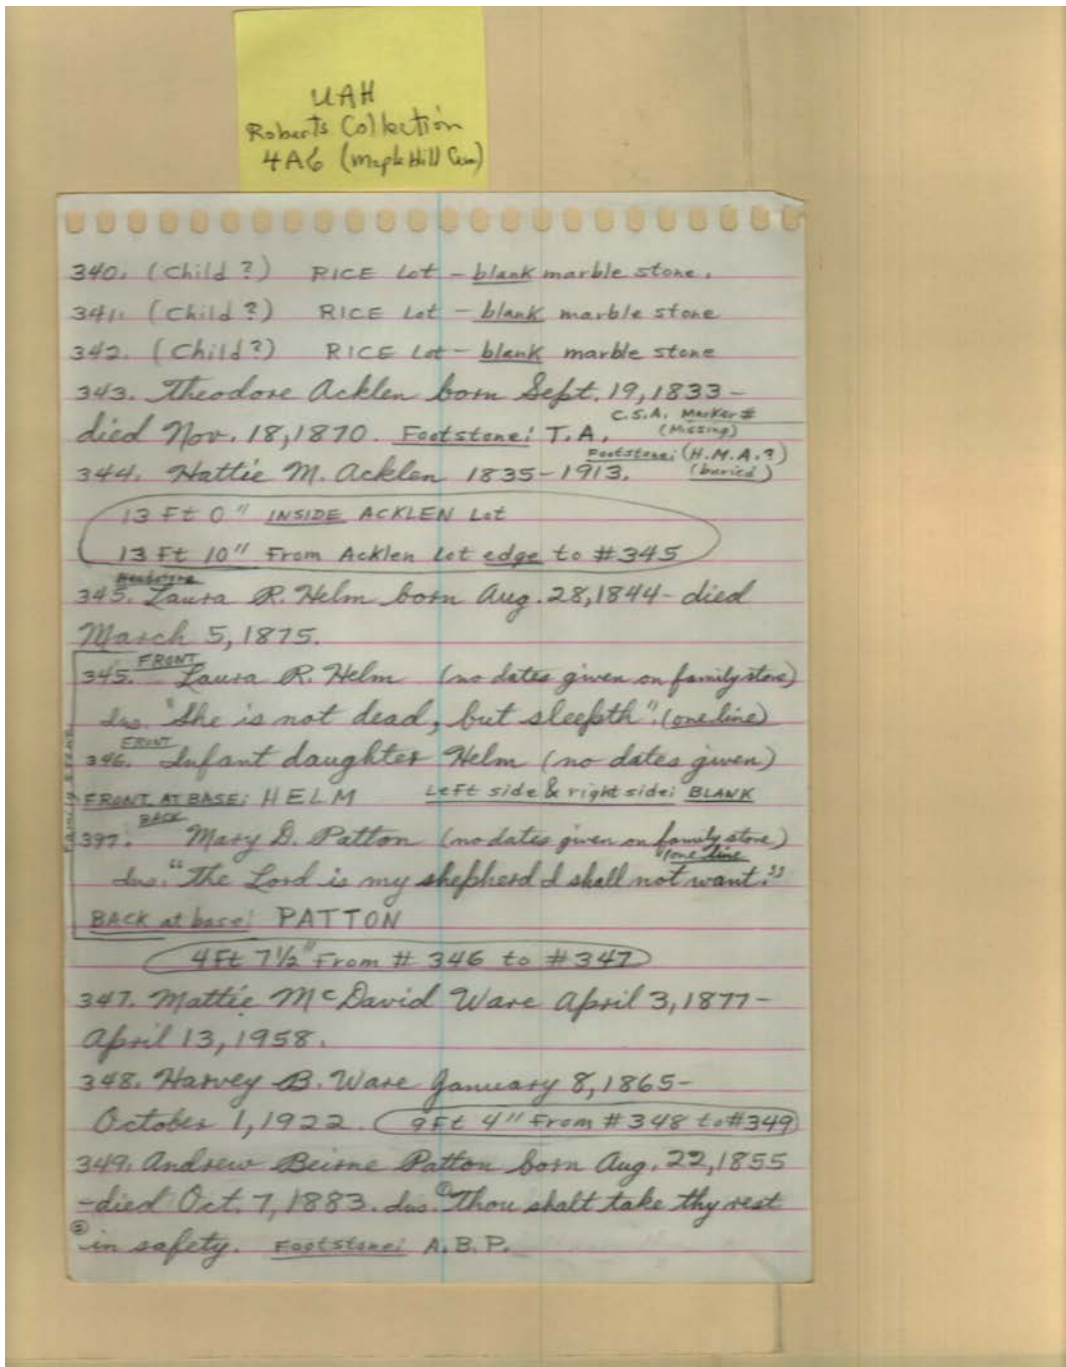 UAH
Roberts Collection
4A6 (Maple Hill Cem)
340. (Child?) RICE Lot - blank marble stone.
341. (Child?) RICE Lot - blank marble stone
342. (Child?) RICE Lot - blank marble stone
343. Theodore Acklen born Sept. 19, 1833 -
C.S.A. Marker #
(Missing)
died Nov. 18, 1870. Footstone: T.A.
Footstone: (H.M.A.?)
(buried)
344. Hattie M. Acklen 1835-1913.
13 Ft 0" INSIDE ACKLEN Lot
13 Ft 10" From Acklen Lot edge to #345
Headstone
345. Laura R. Helm born Aug. 28, 1844 - died
March 5, 1875.
FRONT
345. Laura R. Helm (no dates given on family stone)
Ins. "She is not dead, but sleepth". (one line)
FRONT
346. Infant daughter Helm (no dates given)
FRONT AT BASE: HELM Left side & right side: BLANK
BACK
397. Mary D. Patton (no dates given on family stone)
one line
Ins. "The Lord is my shepherd I shall not want."
BACK at base: PATTON
Family Stone
4Ft 7½" From # 346 to #347
347. Mattie McDavid Ware April 3, 1877 -
April 13, 1958.
348. Harvey B. Ware January 8, 1865 -
October 1, 1922. 9Ft 4" From #348 to #349
349. Andrew Beirne Patton born Aug. 22, 1855
- died Oct. 7, 1883. Ins. ① "Thou shalt take thy rest
② in safety. Footstone: A.B.P.